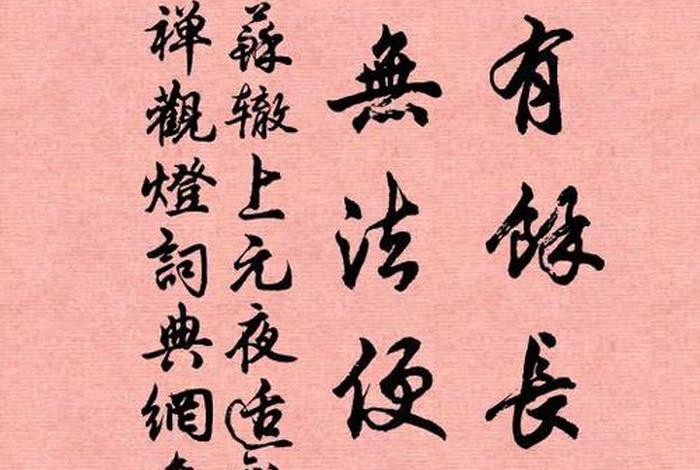 有餘長
無法便
蘇辙上元夜适
禅觀燈詞典網